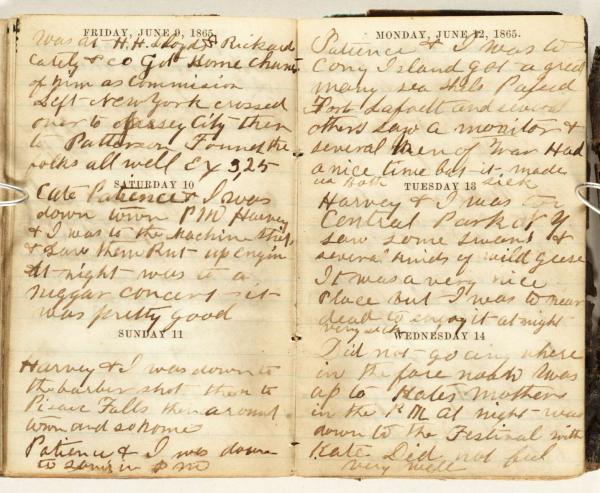 FRIDAY, JUNE 9, 1865.
was at H. H. Lloyd & Rickard
Cately & co Got Home Chart
of him as Commision
Left New York crossed
over to Jersey City then
to Patterson Found the
folks all well Ex 3,25
SATURDAY 10
Cate Patience & I was
down town P M Harvey
& I was to the Machine Shop
& Saw them Put up Engin
At night was to a
niggar concert it
was pretty good
SUNDAY 11
Harvey & I was down to
the barber shot then to
Falls then around
town and so home
Patience & I was down
to in P M
MONDAY, JUNE 12, 1865.
Patience & I was to
Cony Island got a great
many sea shells Passed
Fort Lafnett and several
others saw a monitor &
several Men of War Had
a nice time but it made
us both sick
TUESDAY 13
Harvey & I was to
Central Park N Y
saw some swans &
several kinds of wild geese
It was a very nice
Place but I was to near
dead to enjoy it at night
very sick
WEDNESDAY 14
Did not go any where
in the fore noon was
up to Kates Mothers
in the P M At night was
down to the Festival with
Kate Did not feel
very well